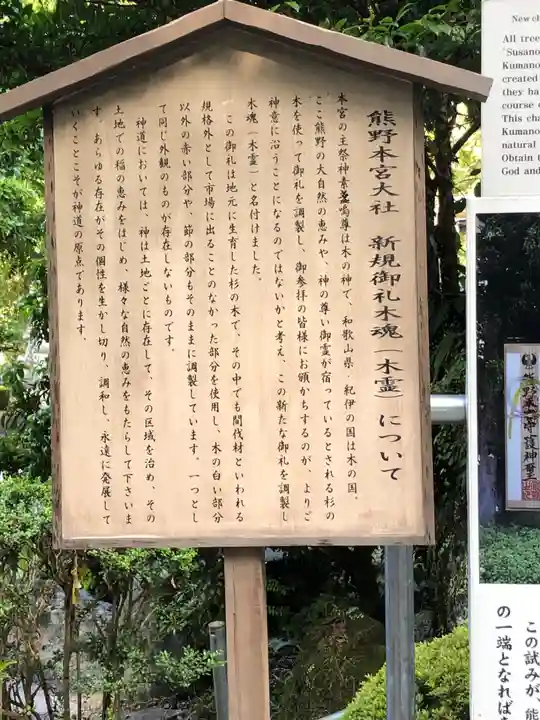 熊野本宮大社 新規御札木魂(木霊)について
本宮の主祭神素盞嗚尊は木の神で、和歌山県、紀伊の国は木の国。
ここ熊野の大自然の恵みや、神の尊い御霊が宿っているとされる杉の
木を使って御札を調製し、御参拝の皆様にお頒かちするのが、よりご
神意に沿うことになるのではないかと考え、この新たな御札を調製し
木魂(木霊)と名付けました。
この御札は地元に生育した杉の木で、その中でも間伐材といわれる
規格外として市場に出ることのなかった部分を使用し、木の白い部分
以外の赤い部分や、節の部分もそのままに調製しています。一つとし
て同じ外観のものが存在しないものです。
神道においては、神は土地ごとに存在して、その区域を治め、その
土地での稲の恵みをはじめ、様々な自然の恵みをもたらして下さいま
す。あらゆる存在がその個性を生かし切り、調和し、永遠に発展して
いくことこそが神道の原点であります。
New ch
All tree
"Susano
Kumano
created
they ba
course o
This cha
Kumano
natural
Obtain t
God and
この試みが、熊
の一端となれば